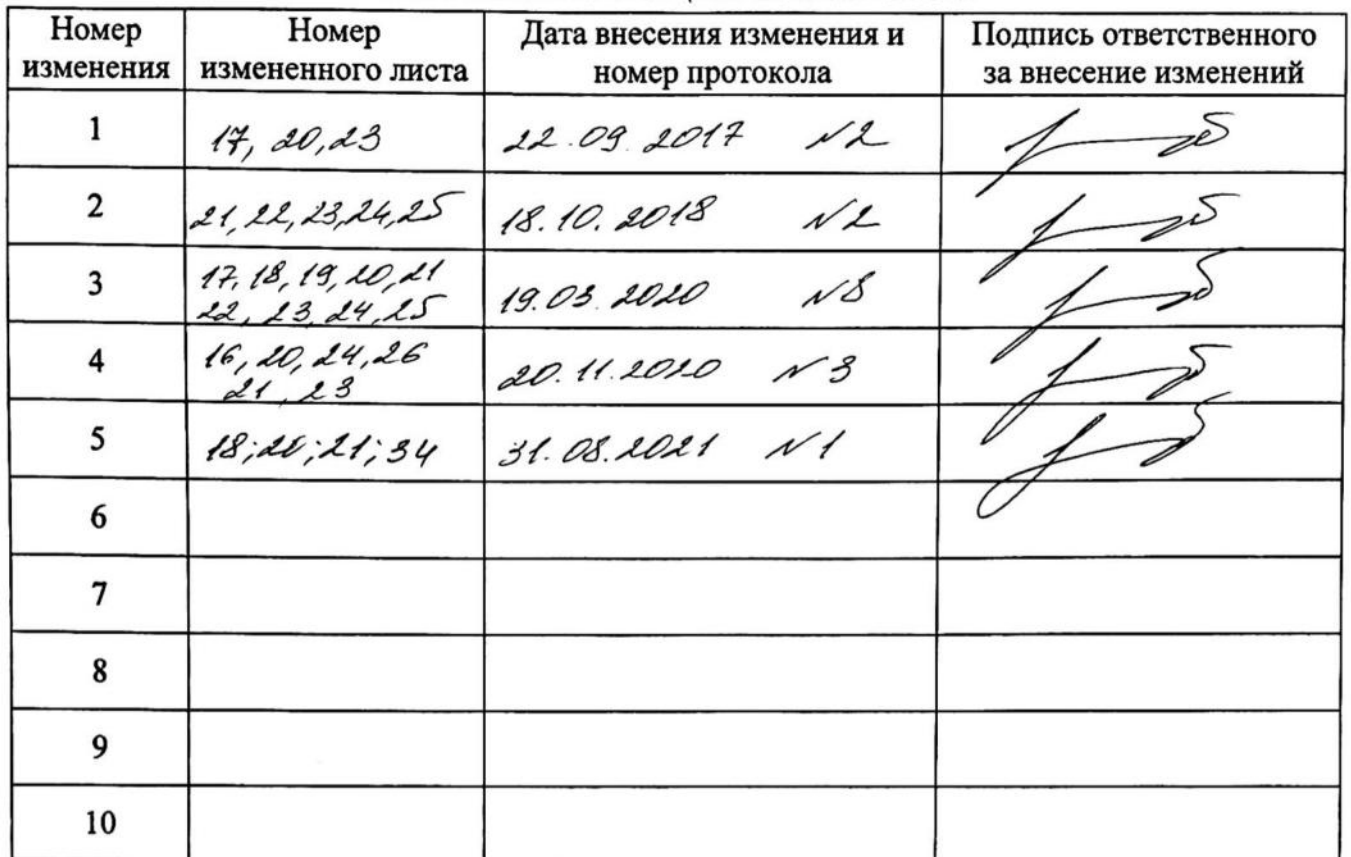 Номер изменения Номер измененного листа Дата внесения изменения и номер протокола Подпись ответственного за внесение изменений
1 17, 20, 23 22.09.2017 №2
2 21, 22, 23, 24, 25 18.10.2018 №2
3 17, 18, 19, 20, 21 19.03.2020 №8
22, 23, 24, 25
4 16, 20, 24, 26 20.11.2020 №3
21, 23
5 18; 20; 21; 34 31.08.2021 №1
6
7
8
9
10